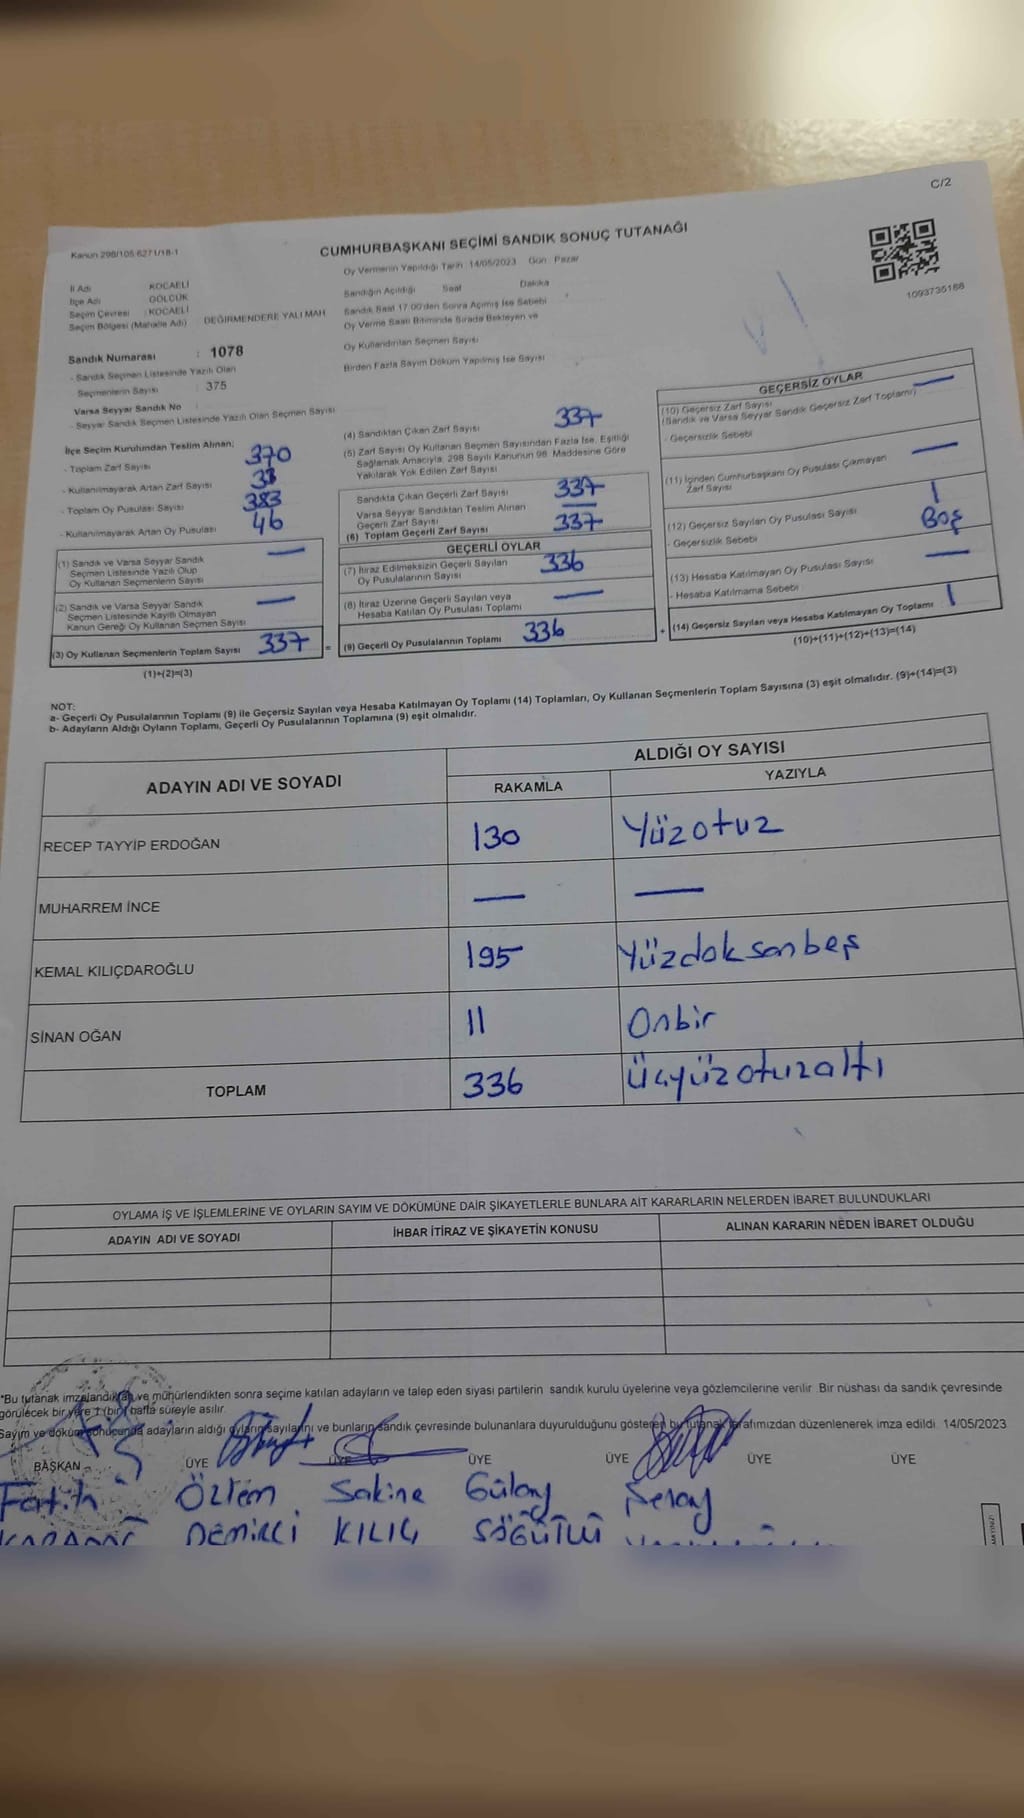 C/2
Kanun 298/105 6271/18-1
CUMHURBAŞKANI SEÇİMİ SANDIK SONUÇ TUTANAĞI
1093735188
İl Adı : KOCAELİ
İlçe Adı : GÖLCÜK
Seçim Çevresi : KOCAELİ
Seçim Bölgesi (Mahalle Adı) : DEĞİRMENDERE YALI MAH
Sandık Numarası : 1078
- Sandık Seçmen Listesinde Yazılı Olan
Seçmenlerin Sayısı : 375
Varsa Seyyar Sandık No :
- Seyyar Sandık Seçmen Listesinde Yazılı Olan Seçmen Sayısı
İlçe Seçim Kurulundan Teslim Alınan;
- Toplam Zarf Sayısı 370
- Kullanılmayarak Artan Zarf Sayısı 33
- Toplam Oy Pusulası Sayısı 383
- Kullanılmayarak Artan Oy Pusulası 46
(1) Sandık ve Varsa Seyyar Sandık
Seçmen Listesinde Yazılı Olup
Oy Kullanan Seçmenlerin Sayısı —
(2) Sandık ve Varsa Seyyar Sandık
Seçmen Listesinde Kayıtlı Olmayan
Kanun Gereği Oy Kullanan Seçmen Sayısı —
(3) Oy Kullanan Seçmenlerin Toplam Sayısı 337 =
(1)+(2)=(3)
Oy Vermenin Yapıldığı Tarih : 14/05/2023 Gün : Pazar
Sandığın Açıldığı Saat Dakika
Sandık Saat 17:00'den Sonra Açımış İse Sebebi
Oy Verme Saati Bitiminde Sırada Bekleyen ve
Oy Kullandırılan Seçmen Sayısı
Birden Fazla Sayım Döküm Yapılmış İse Sayısı
(4) Sandıktan Çıkan Zarf Sayısı 337
(5) Zarf Sayısı Oy Kullanan Seçmen Sayısından Fazla İse, Eşitliği
Sağlamak Amacıyla, 298 Sayılı Kanunun 98. Maddesine Göre
Yakılarak Yok Edilen Zarf Sayısı
Sandıkta Çıkan Geçerli Zarf Sayısı 337
Varsa Seyyar Sandıktan Teslim Alınan
Geçerli Zarf Sayısı —
(6) Toplam Geçerli Zarf Sayısı 337
GEÇERLİ OYLAR
(7) İtiraz Edilmeksizin Geçerli Sayılan
Oy Pusulalarının Sayısı 336
(8) İtiraz Üzerine Geçerli Sayılan veya
Hesaba Katılan Oy Pusulası Toplamı —
(9) Geçerli Oy Pusulalarının Toplamı 336 +
GEÇERSİZ OYLAR
(10) Geçersiz Zarf Sayısı —
(Sandık ve Varsa Seyyar Sandık Geçersiz Zarf Toplamı)
- Geçersizlik Sebebi
(11) İçinden Cumhurbaşkanı Oy Pusulası Çıkmayan
Zarf Sayısı —
(12) Geçersiz Sayılan Oy Pusulası Sayısı 1
- Geçersizlik Sebebi Boş
(13) Hesaba Katılmayan Oy Pusulası Sayısı —
- Hesaba Katılmama Sebebi
(14) Geçersiz Sayılan veya Hesaba Katılmayan Oy Toplamı 1
(10)+(11)+(12)+(13)=(14)
NOT:
a- Geçerli Oy Pusulalarının Toplamı (9) ile Geçersiz Sayılan veya Hesaba Katılmayan Oy Toplamı (14) Toplamları, Oy Kullanan Seçmenlerin Toplam Sayısına (3) eşit olmalıdır. (9)+(14)=(3)
b- Adayların Aldığı Oyların Toplamı, Geçerli Oy Pusulalarının Toplamına (9) eşit olmalıdır.
ADAYIN ADI VE SOYADI ALDIĞI OY SAYISI
RAKAMLA YAZIYLA
RECEP TAYYİP ERDOĞAN 130 Yüzotuz
MUHARREM İNCE — —
KEMAL KILIÇDAROĞLU 195 Yüzdoksanbeş
SİNAN OĞAN 11 Onbir
TOPLAM 336 Üçyüzotuzaltı
OYLAMA İŞ VE İŞLEMLERİNE VE OYLARIN SAYIM VE DÖKÜMÜNE DAİR ŞİKAYETLERLE BUNLARA AİT KARARLARIN NELERDEN İBARET BULUNDUKLARI
ADAYIN ADI VE SOYADI İHBAR İTİRAZ VE ŞİKAYETİN KONUSU ALINAN KARARIN NEDEN İBARET OLDUĞU
*Bu tutanak imzalandıktan ve mühürlendikten sonra seçime katılan adayların ve talep eden siyasi partilerin sandık kurulu üyelerine veya gözlemcilerine verilir .Bir nüshası da sandık çevresinde
görülecek bir yere 1 (bir) hafta süreyle asılır.
Sayım ve döküm sonucunda adayların aldığı oyların sayılarını ve bunların sandık çevresinde bulunanlara duyurulduğunu gösteren bu tutanak tarafımızdan düzenlenerek imza edildi. 14/05/2023
BAŞKAN ÜYE ÜYE ÜYE ÜYE ÜYE ÜYE
Fatih Özlem Sakine Gülay Seray
DEMİRCİ KILIÇ SÖĞÜTLÜ